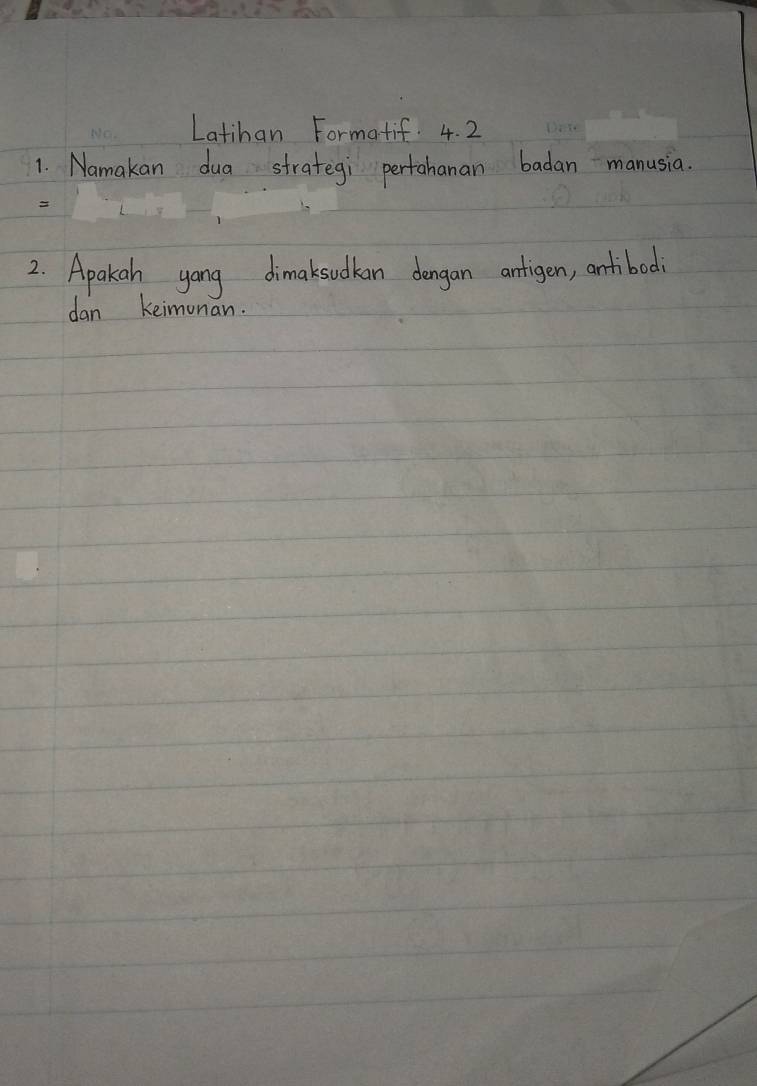 No. Latihan Formatif. 4.2 Date
1. Namakan dua strategi pertahanan badan manusia.
=
2. Apakah yang dimaksudkan dengan antigen, antibodi
dan keimunan.